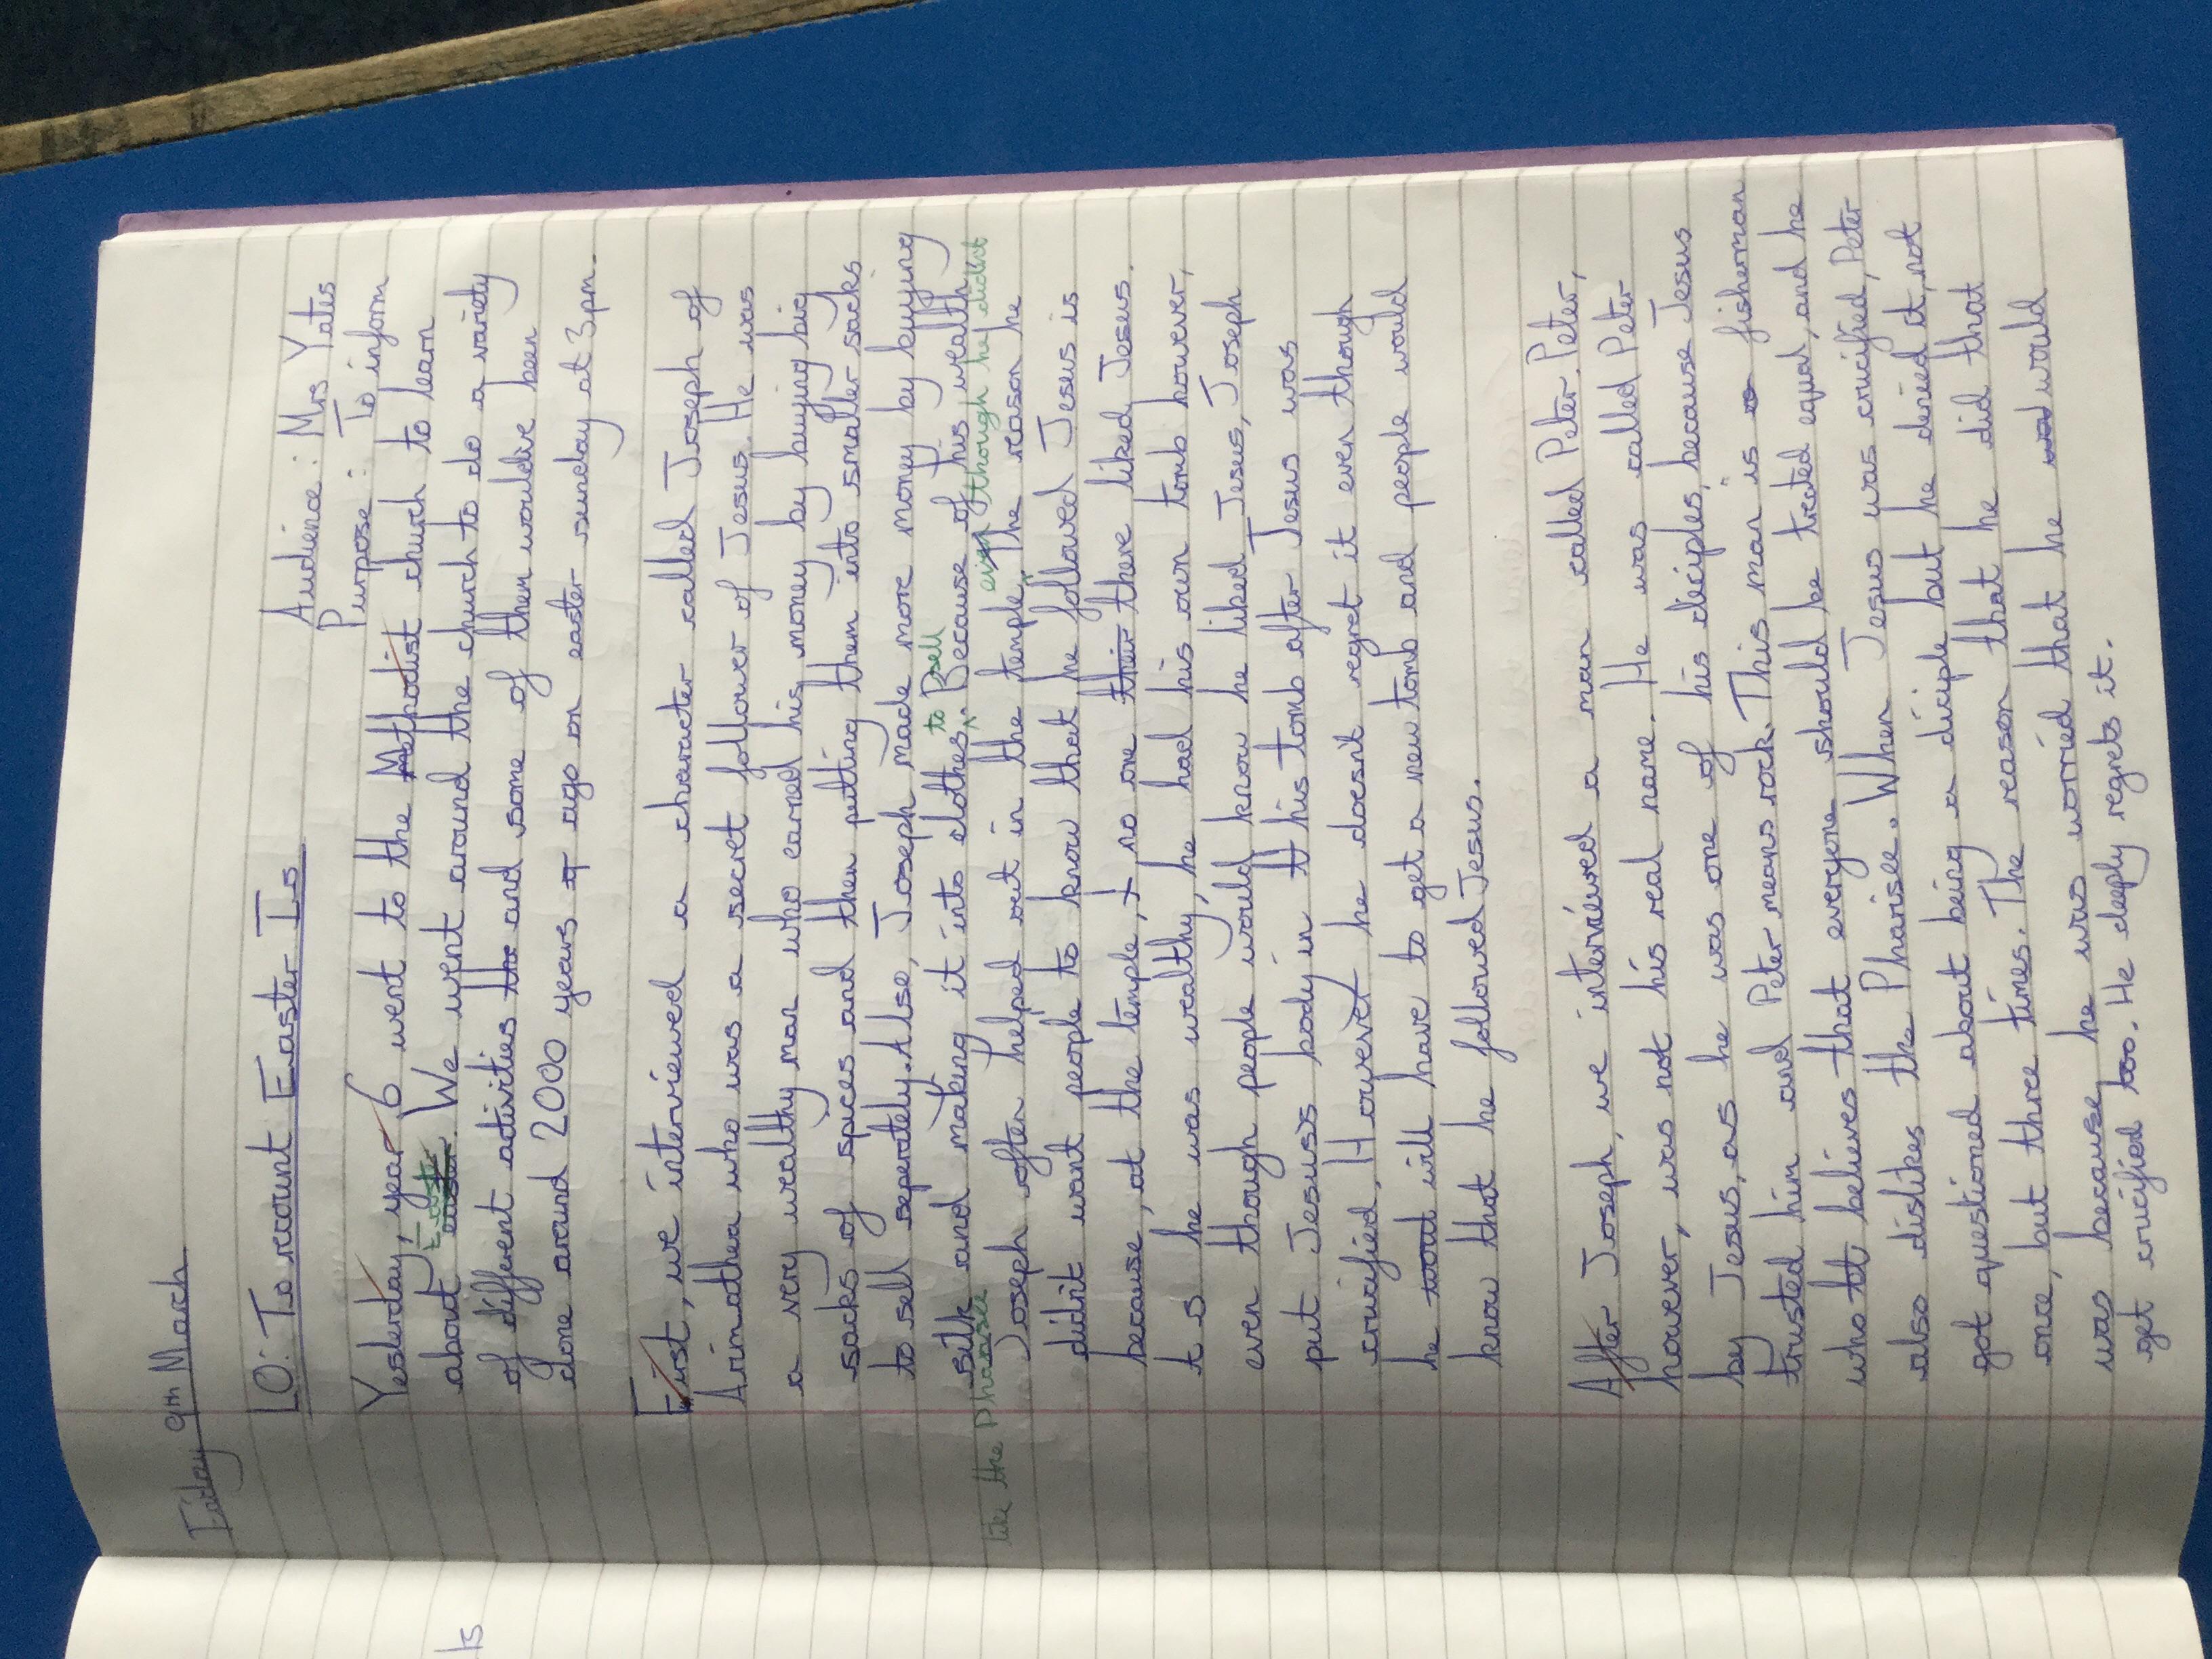 Friday 9th March
LO: To recount Easter Is
Audience: Mrs Yates
Purpose: To inform
Yesterday, year 6 went to the Methodist church to learn
about Easter. We went around the church to do a variety
of different activities the and some of them would've been
done around 2000 years ago on easter sunday at 3pm.
First, we interviewed a character called Joseph of
Arimathea who was a secret follower of Jesus. He was
a very wealthy man who earned his money by buying big
sacks of spices and then putting them into smaller sacks
to sell seperately. Also, Joseph made more money by buying
silk and making it into clothes to sell. Because of his wealth,
Joseph often helped out in the temple even though he didn't
like the Pharisee. The reason he
didn't want people to know that he followed Jesus is
because, at the temple, no one their there liked Jesus.
he was wealthy, he had his own tomb however,
even though people would know he liked Jesus, Joseph
put Jesus's body in his tomb after Jesus was
crucified. However he doesn't regret it even though
he will have to get a new tomb and people would
know that he followed Jesus.
After Joseph, we interviewed a man called Peter. Peter,
however, was not his real name. He was called Peter
by Jesus, as he was one of his deciples, because Jesus
trusted him and Peter means rock. This man is a fisherman
who believes that everyone should be treated equal, and he
also dislikes the Pharisee. When Jesus was crucified, Peter
got questioned about being a diciple but he denied it, not
once, but three times. The reason that he did that
was because he was worried that he would
get crucified too. He deeply regrets it.
ts